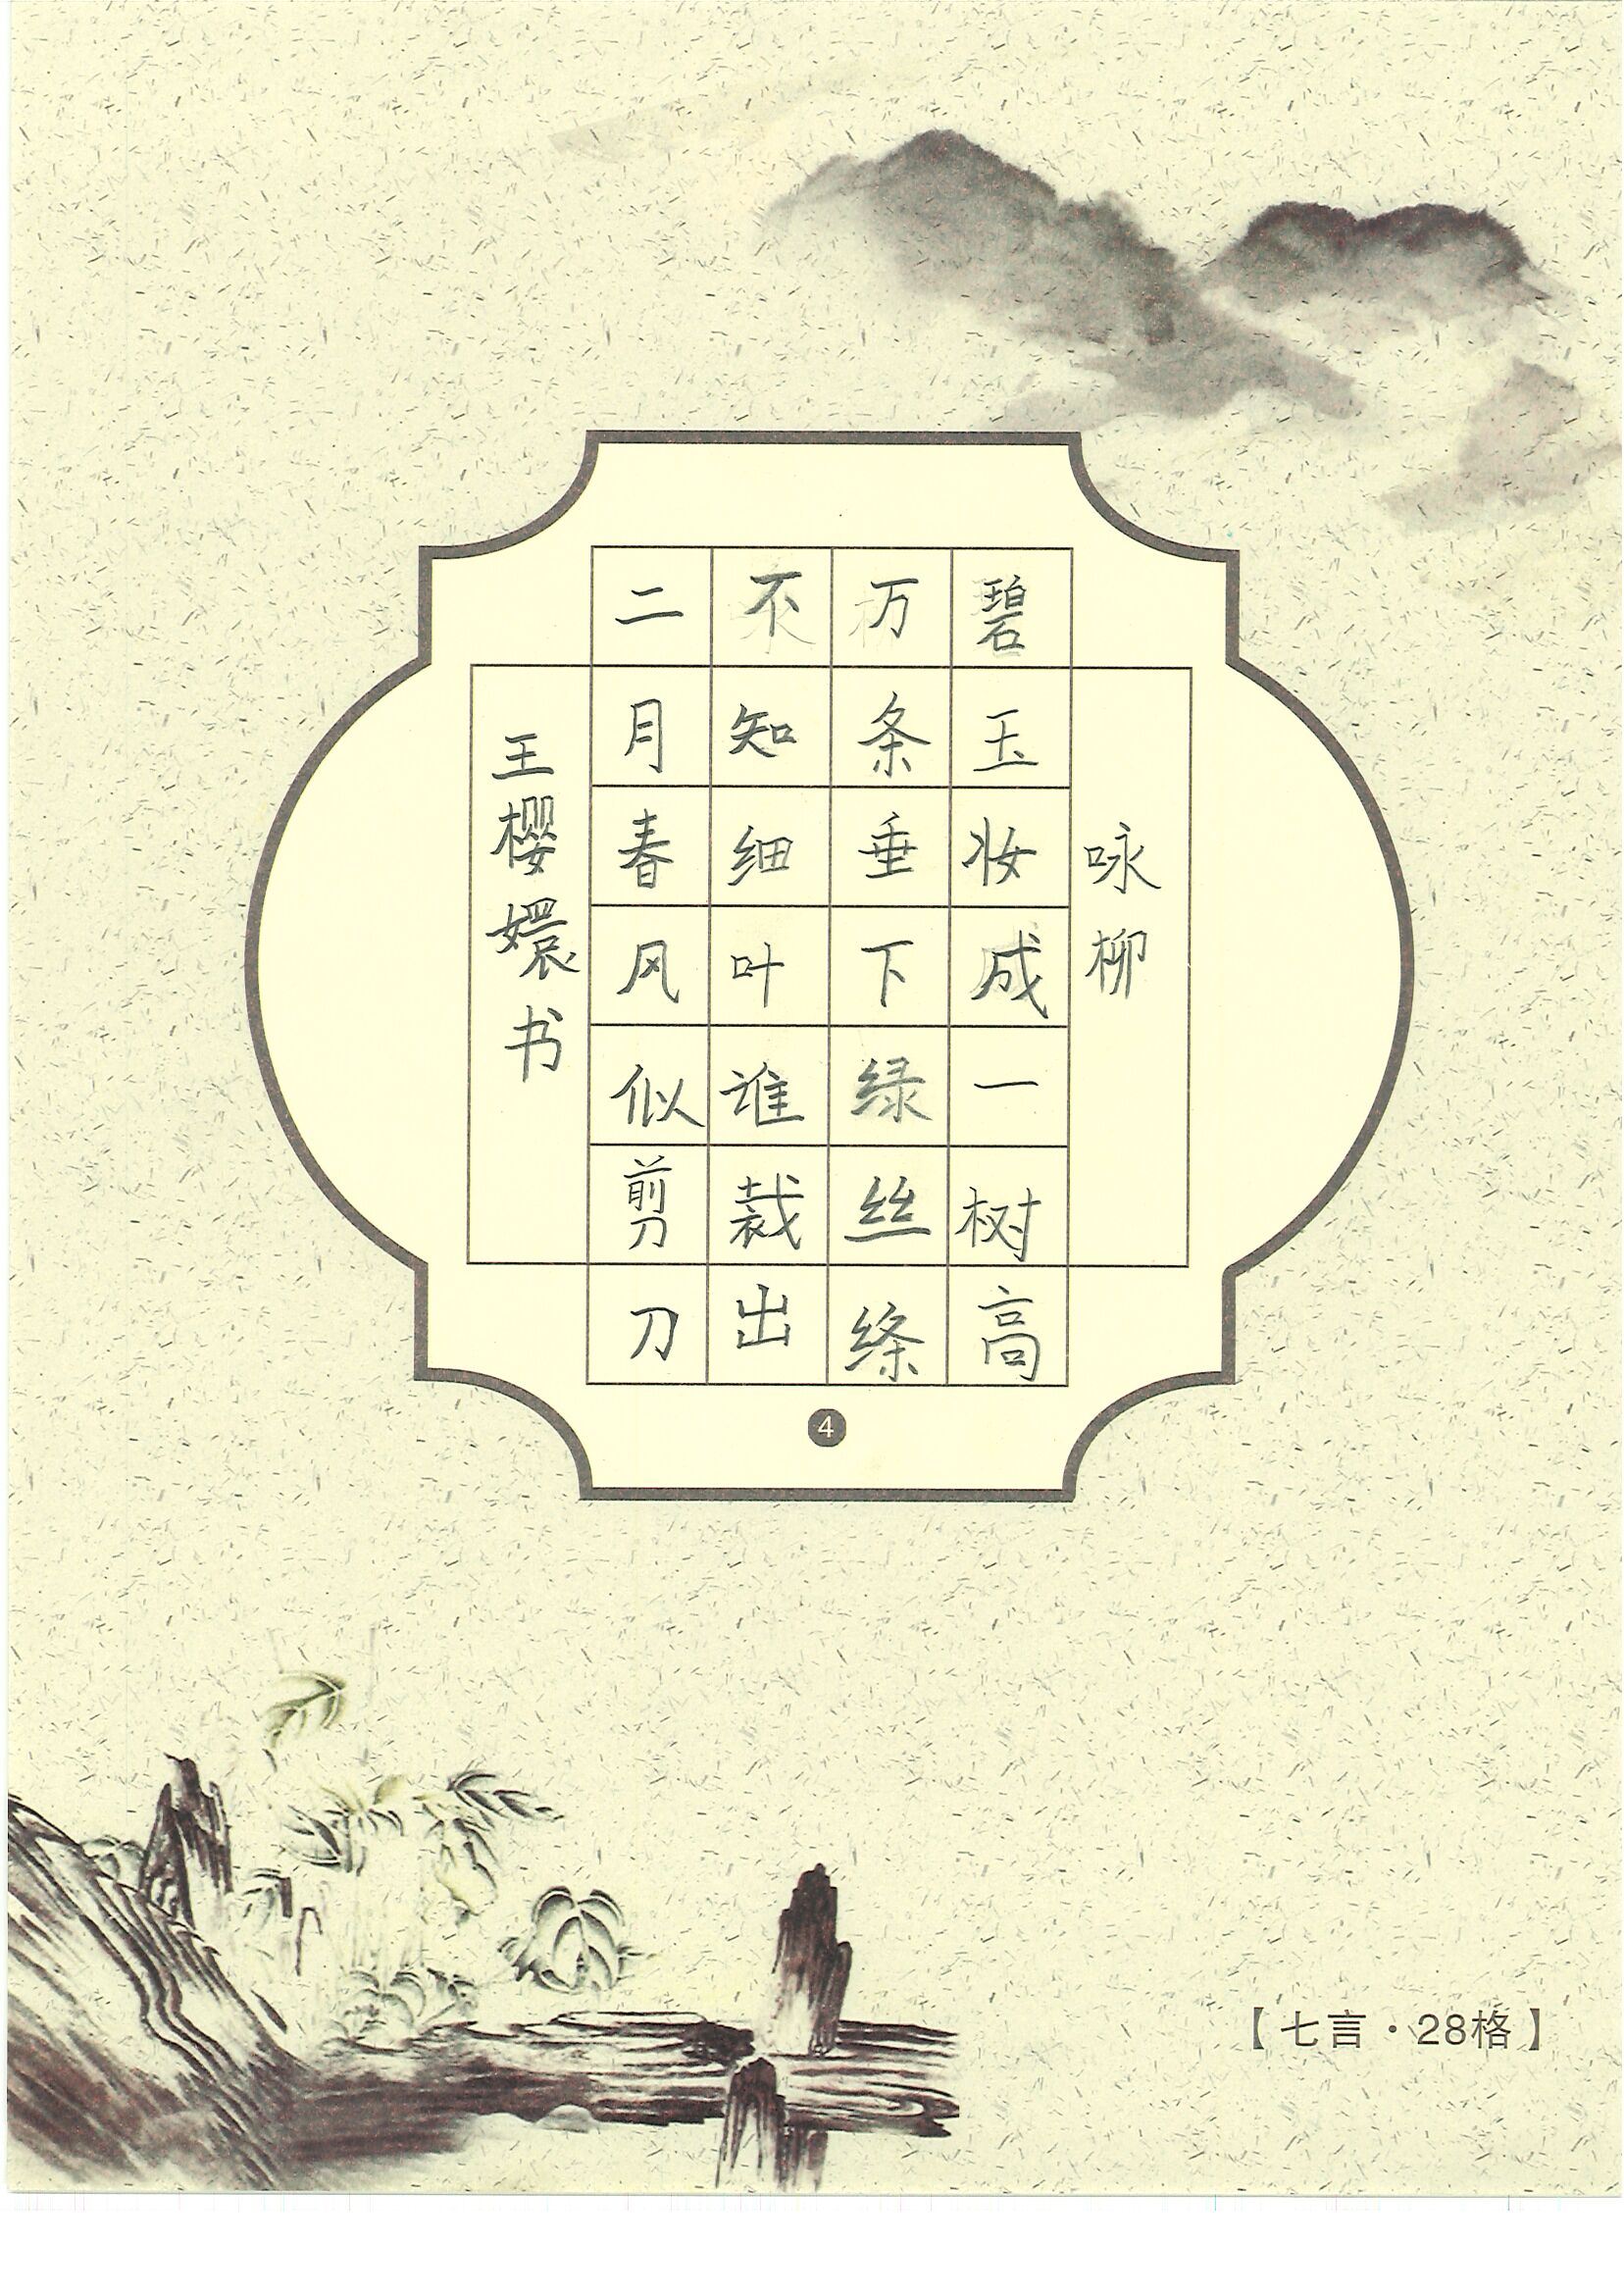 咏柳
碧玉妆成一树高
万条垂下绿丝绦
不知细叶谁裁出
二月春风似剪刀
王樱嬛书
4
【七言·28格】